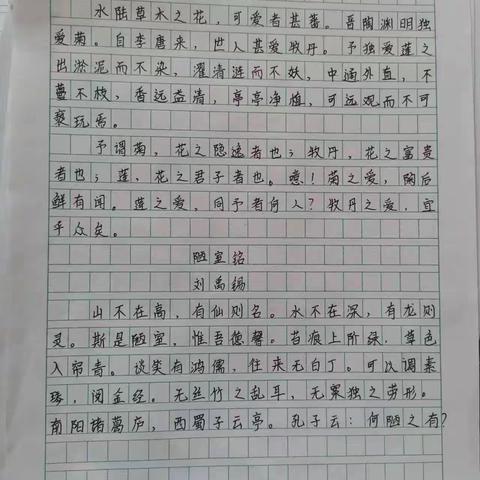 水陆草木之花，可爱者甚蕃。晋陶渊明独
爱菊。自李唐来，世人甚爱牧丹。予独爱莲之
出淤泥而不染，濯清涟而不妖，中通外直，不
蔓不枝，香远益清，亭亭净植，可远观而不可
亵玩焉。
予谓菊，花之隐逸者也；牧丹，花之富贵
者也；莲，花之君子者也。噫！菊之爱，陶后
鲜有闻。莲之爱，同予者何人？牧丹之爱，宜
乎众矣。
陋室铭
刘禹锡
山不在高，有仙则名。水不在深，有龙则
灵。斯是陋室，惟吾德馨。苔痕上阶绿，草色
入帘青。谈笑有鸿儒，往来无白丁。可以调素
琴，阅金经。无丝竹之乱耳，无案独之劳形。
南阳诸葛庐，西蜀子云亭。孔子云：何陋之有？